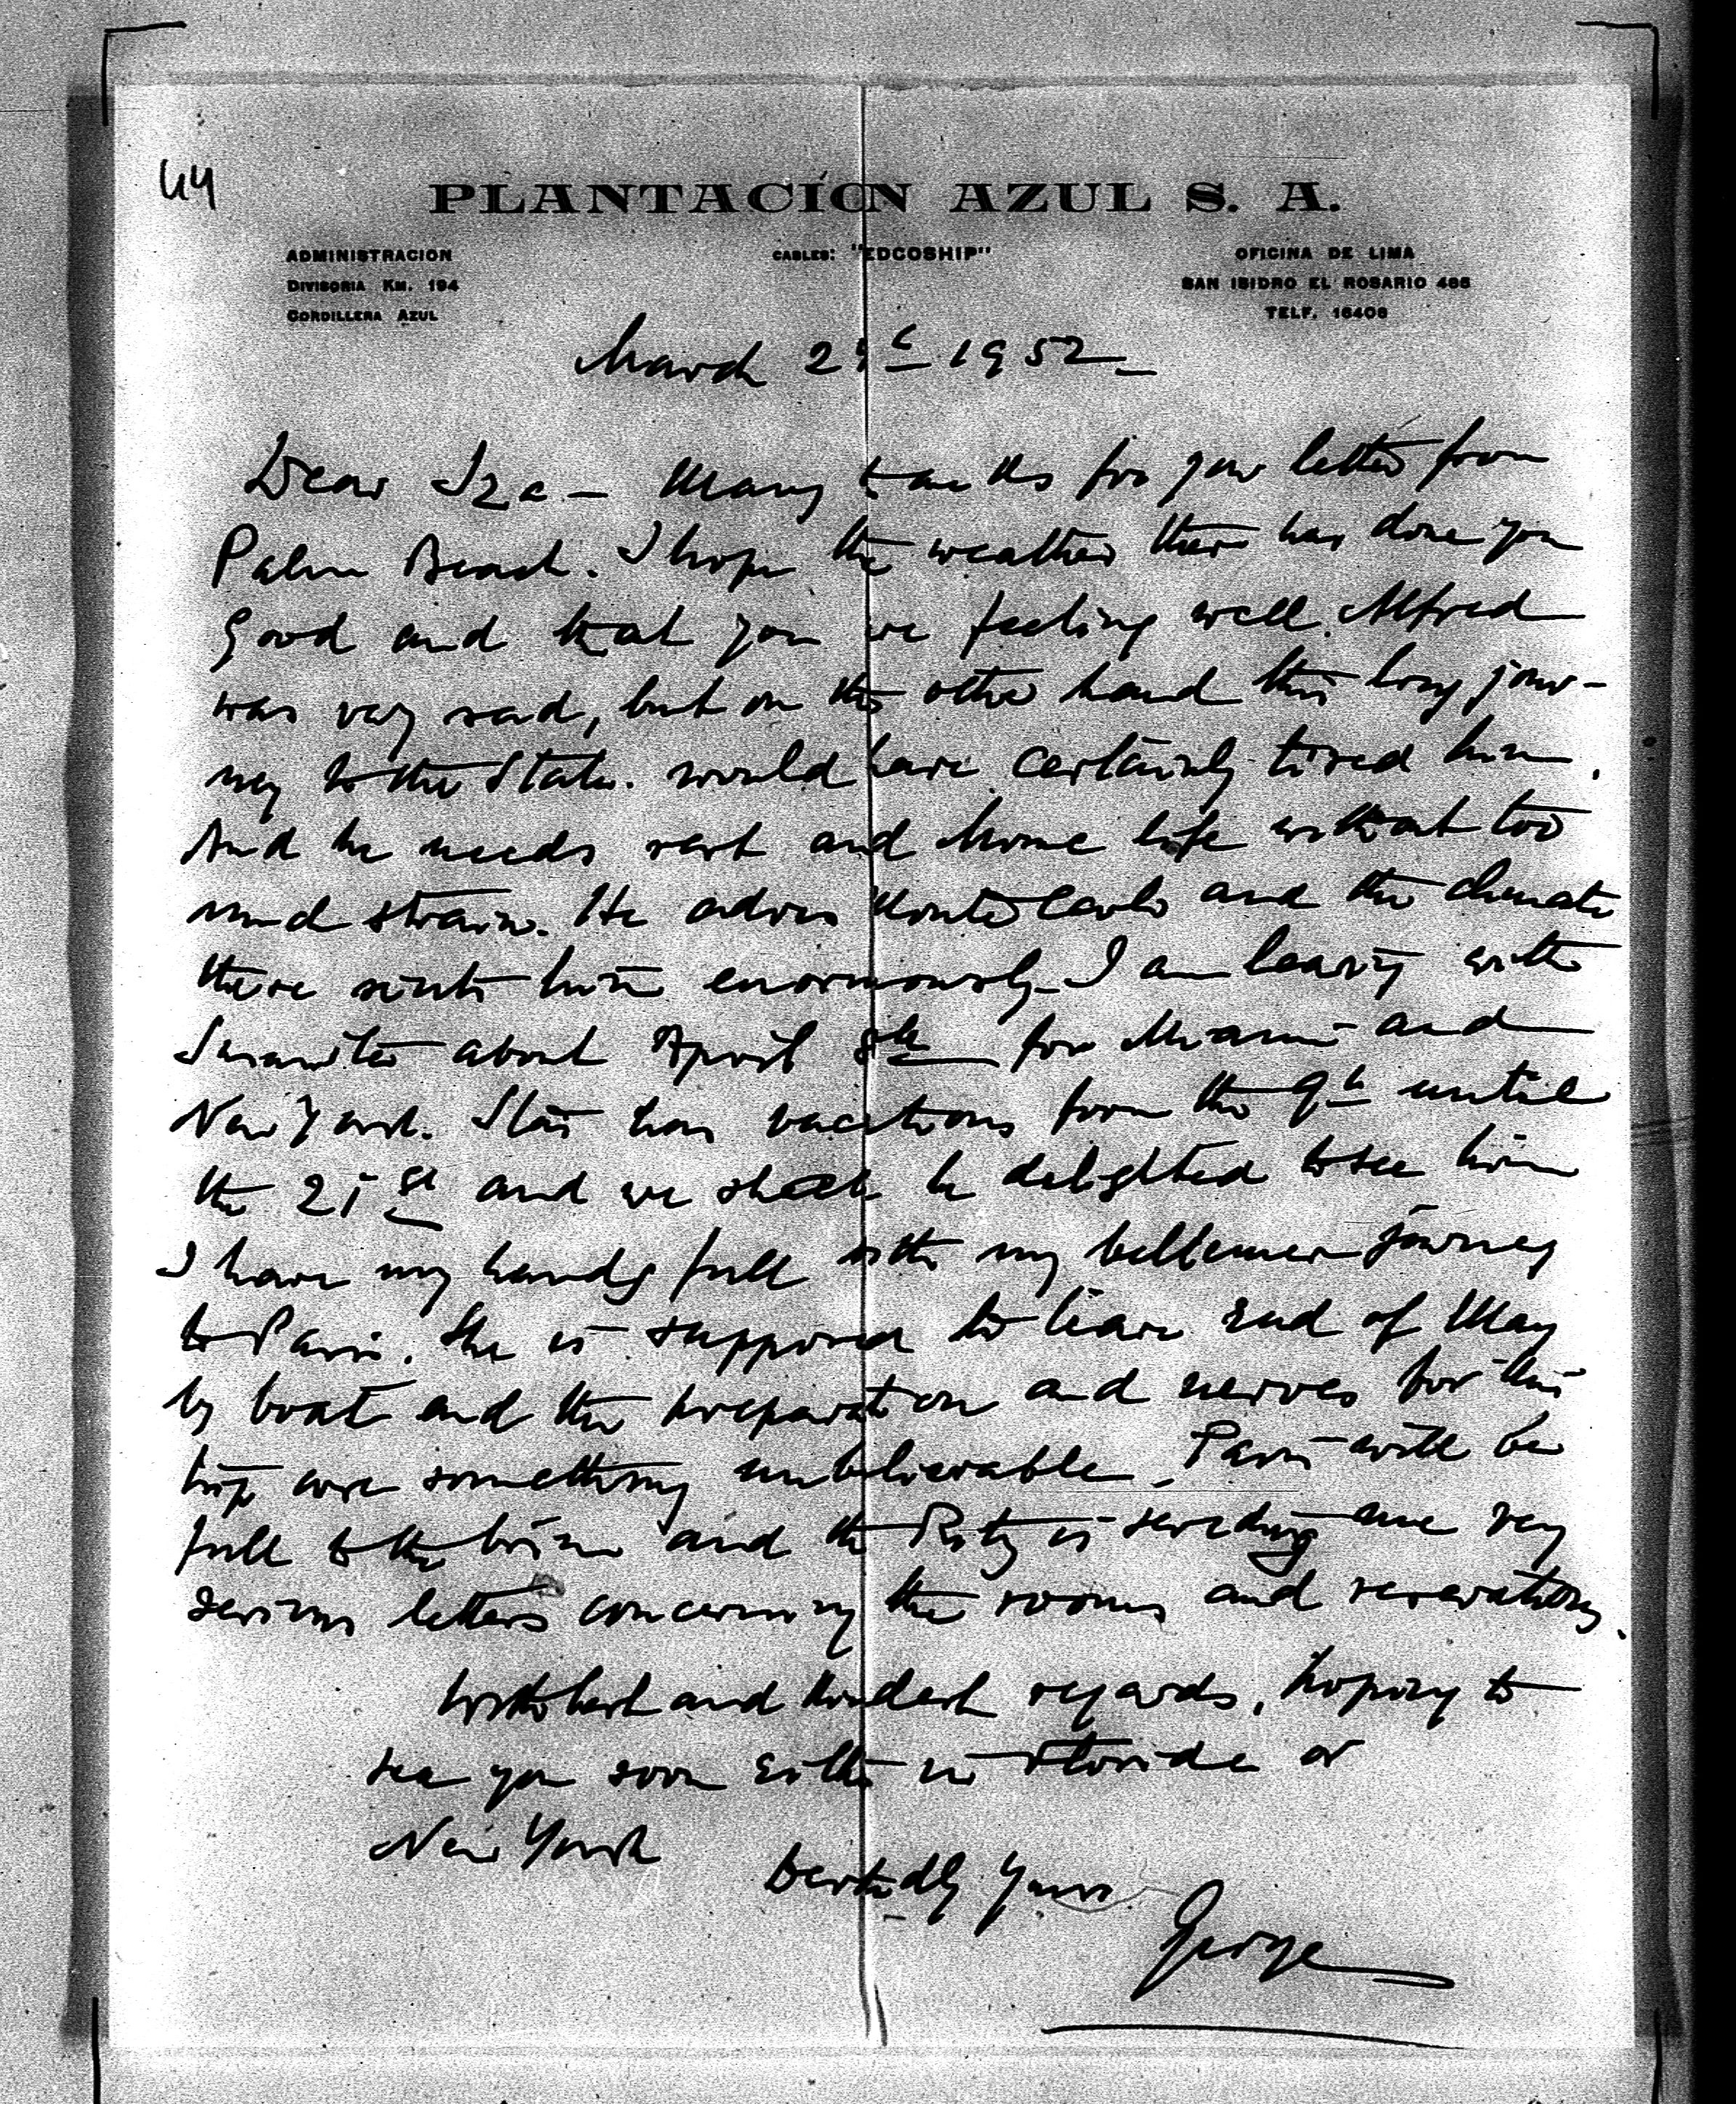 44
PLANTACIÓN AZUL S. A.
ADMINISTRACION
DIVISORIA KM. 194
CORDILLERA AZUL
CABLES: "EDCOSHIP"
OFICINA DE LIMA
SAN ISIDRO EL ROSARIO 485
TELF. 16408
March 1952
Dear Iza - Many thanks for your letter from
Palm Beach. I hope the weather there has done you
good and that you are feeling well. Alfred
was very sad, but on the other hand this long jour-
ney to the States. would have certainly tired him.
And he needs rest and home life without too
much strain. He adores Monte Carlo and the climate
there suits him enormously - I am leaving with
about April 8th for Miami and
New York. has vacations from the 9th until
the 21st and we shall be delighted to see him
I have my hands full with my journey
to Paris. She is supposed to leave end of May
by boat and the preparation and nerves for this
trip are something unbelievable. Paris will be
full to the brim and the Ritz is sending me very
serious letters concerning the rooms and reservations.
With best and kindest regards, hoping to
see you soon either in Floride or
New York
Yours
George